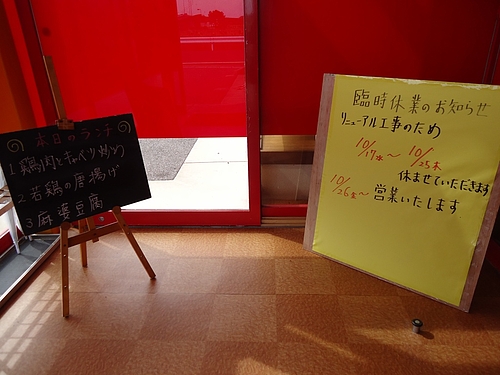 本日のランチ
1 鶏肉とキャベツ炒め
2 若鶏の唐揚げ
3 麻婆豆腐
臨時休業のお知らせ
リニューアル工事のため
10/17水～10/25木
休ませていただきます
10/26金～営業いたします